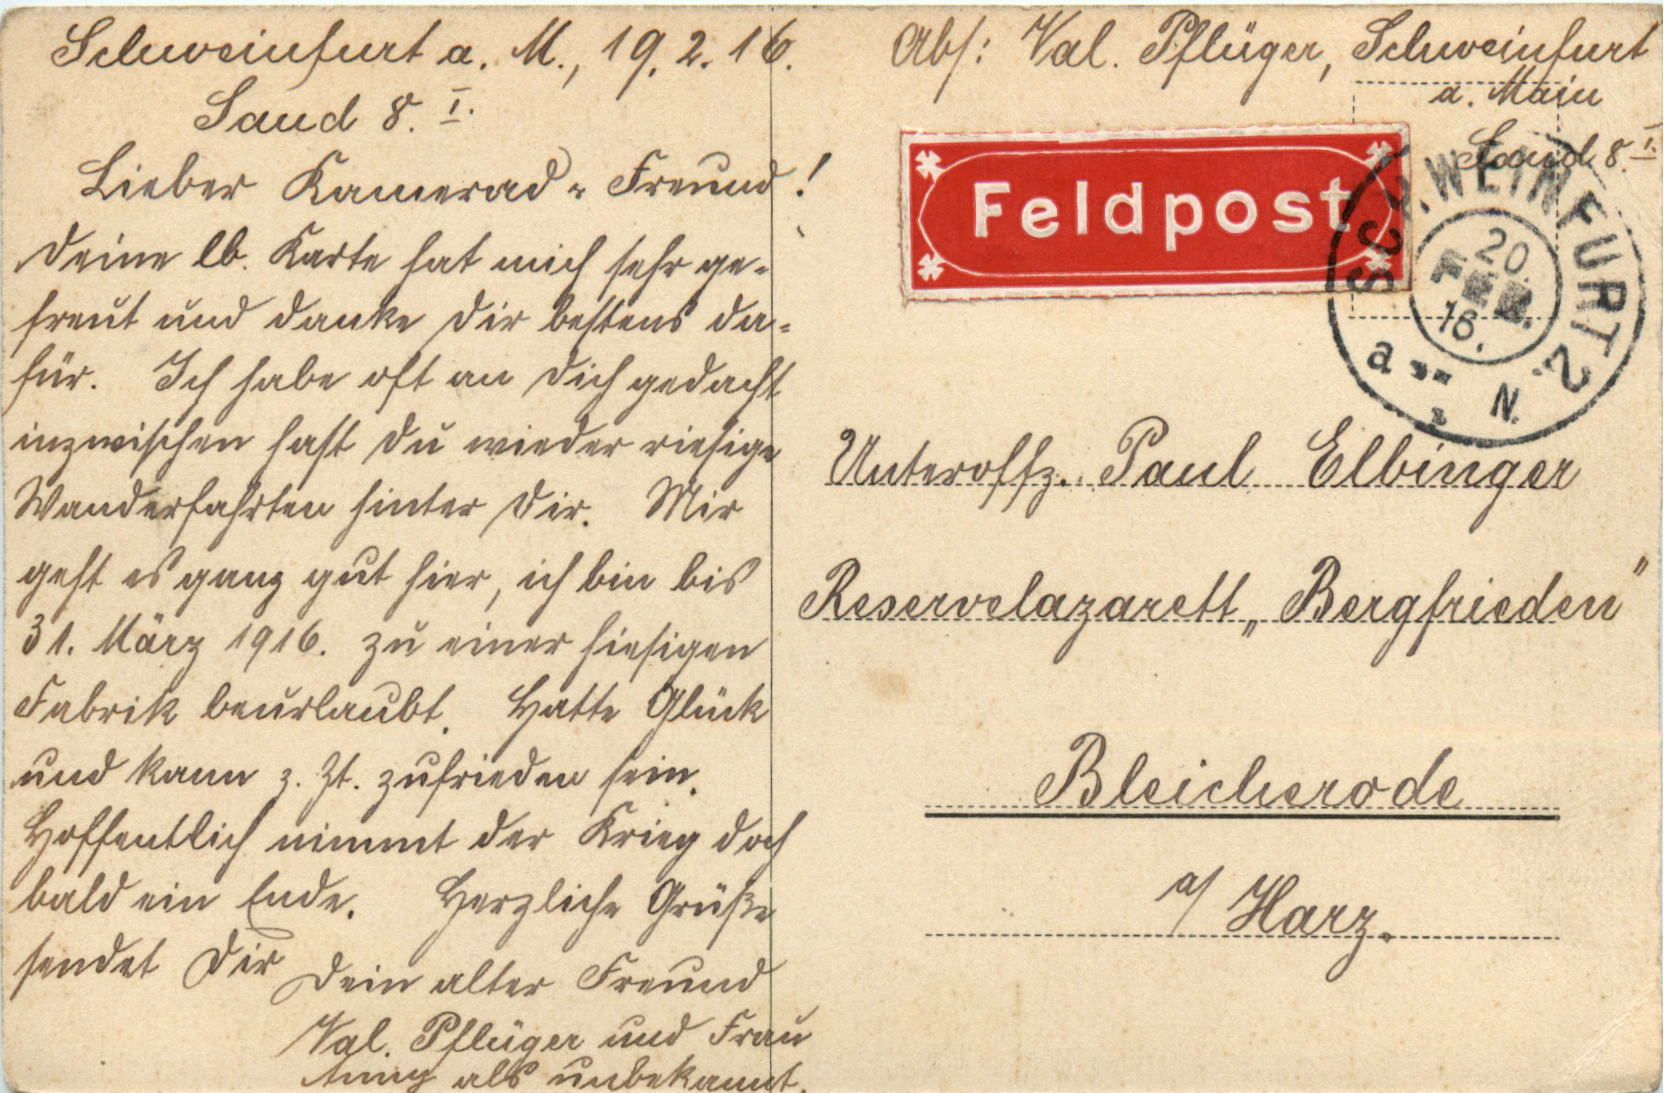 Schweinfurt a. M., 19. 2. 16.
Sand 8. I.
Lieber Kamerad u. Freund!
Deine lb. Karte hat mich sehr ge-
freut und danke Dir bestens da-
für. Ich habe oft an Dich gedacht
inzwischen hast Du wieder riesige
Wanderfahrten hinter Dir. Mir
geht es ganz gut hier, ich bin bis
31. März 1916. zu einer hiesigen
Fabrik beurlaubt. Hatte Glück
und kann z. Zt. zufrieden sein.
Hoffentlich nimmt der Krieg doch
bald ein Ende. Herzliche Grüße
sendet Dir Dein alter Freund
Val. Pflüger und Frau
Anny als unbekannt.
Abs: Val. Pflüger, Schweinfurt
a. Main
Sand 8 I.
Feldpost
SCHWEINFURT 2
20. FEB. 16.
a N.
Unteroffz. Paul Elbinger
Reservelazarett „Bergfrieden"
Bleicherode
a/ Harz.